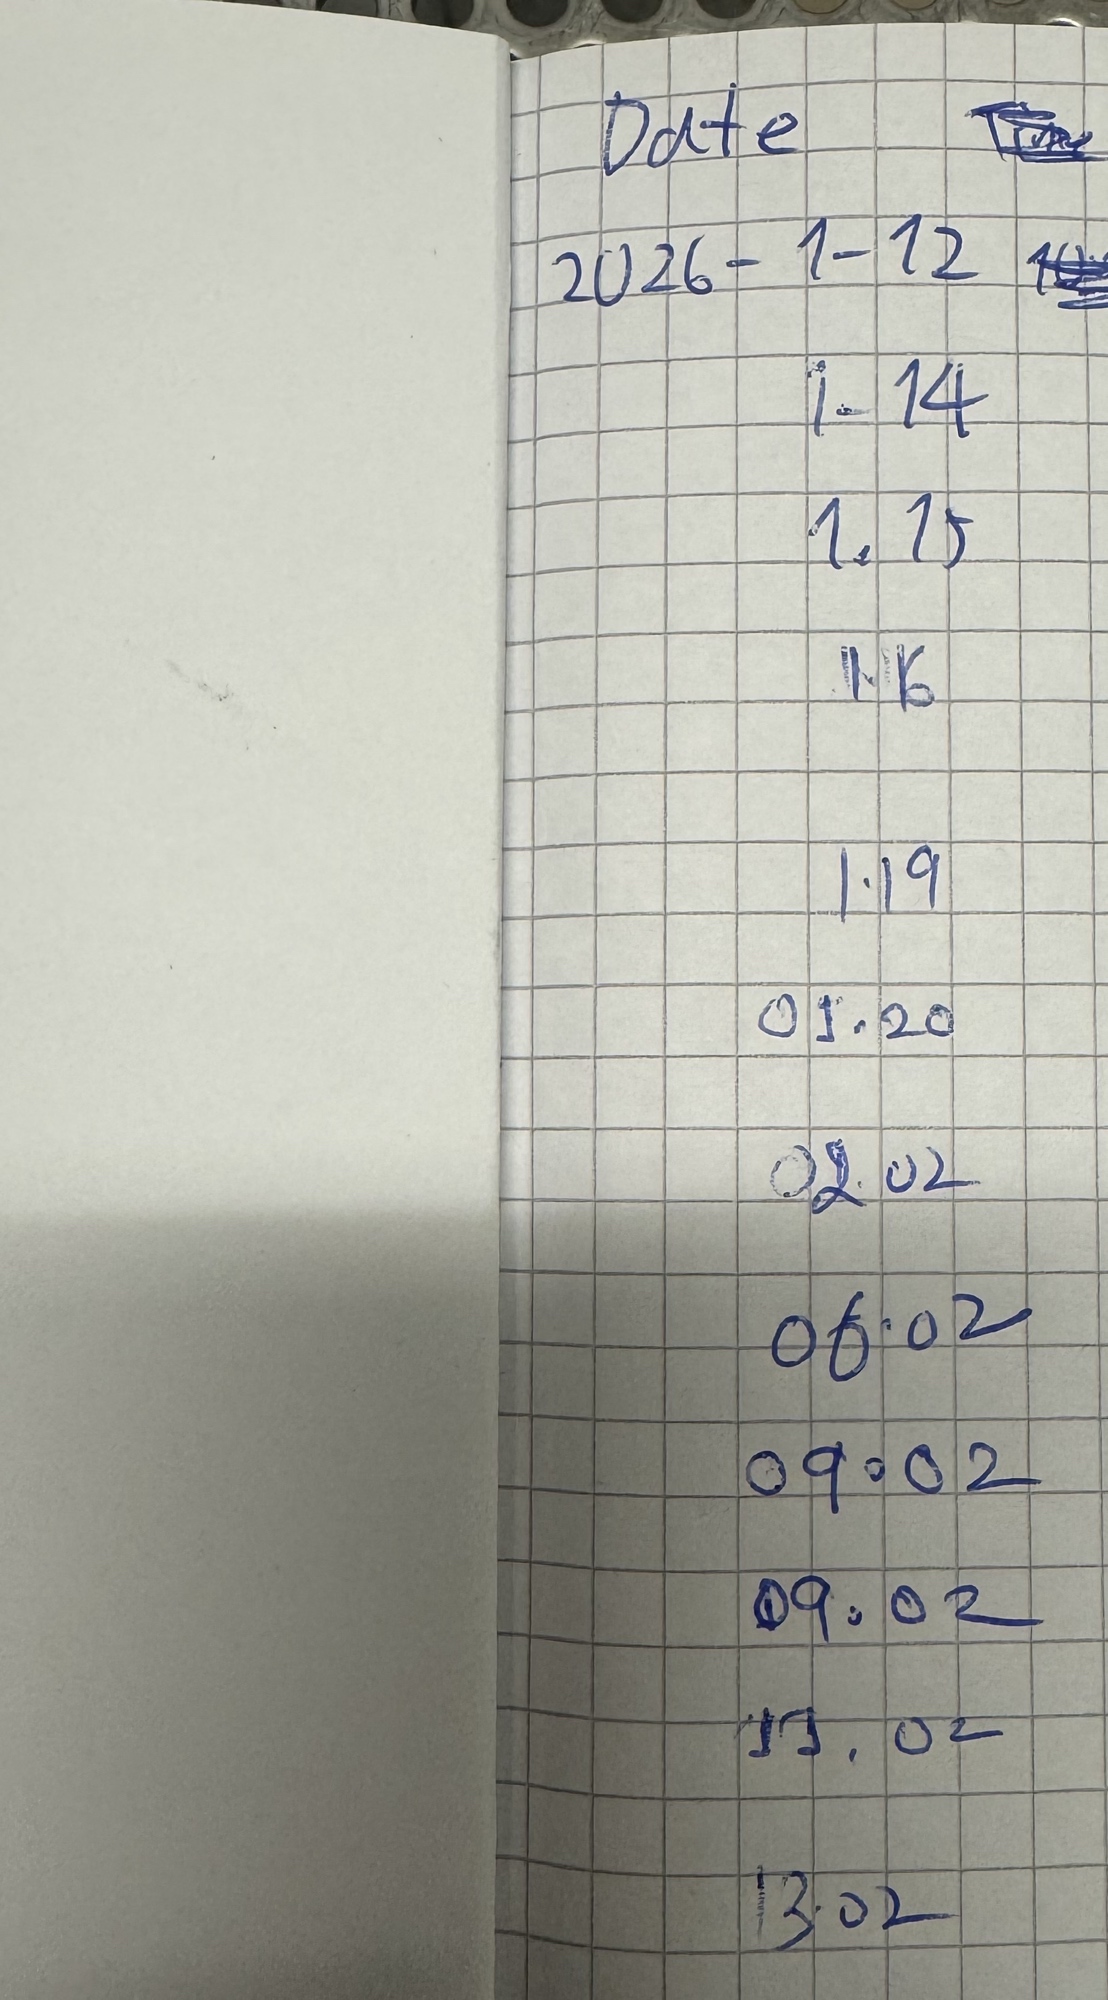 Date
2026-1-12
1-14
1.15
1.16
1.19
01.20
02.02
06.02
09.02
09.02
11.02
13.02